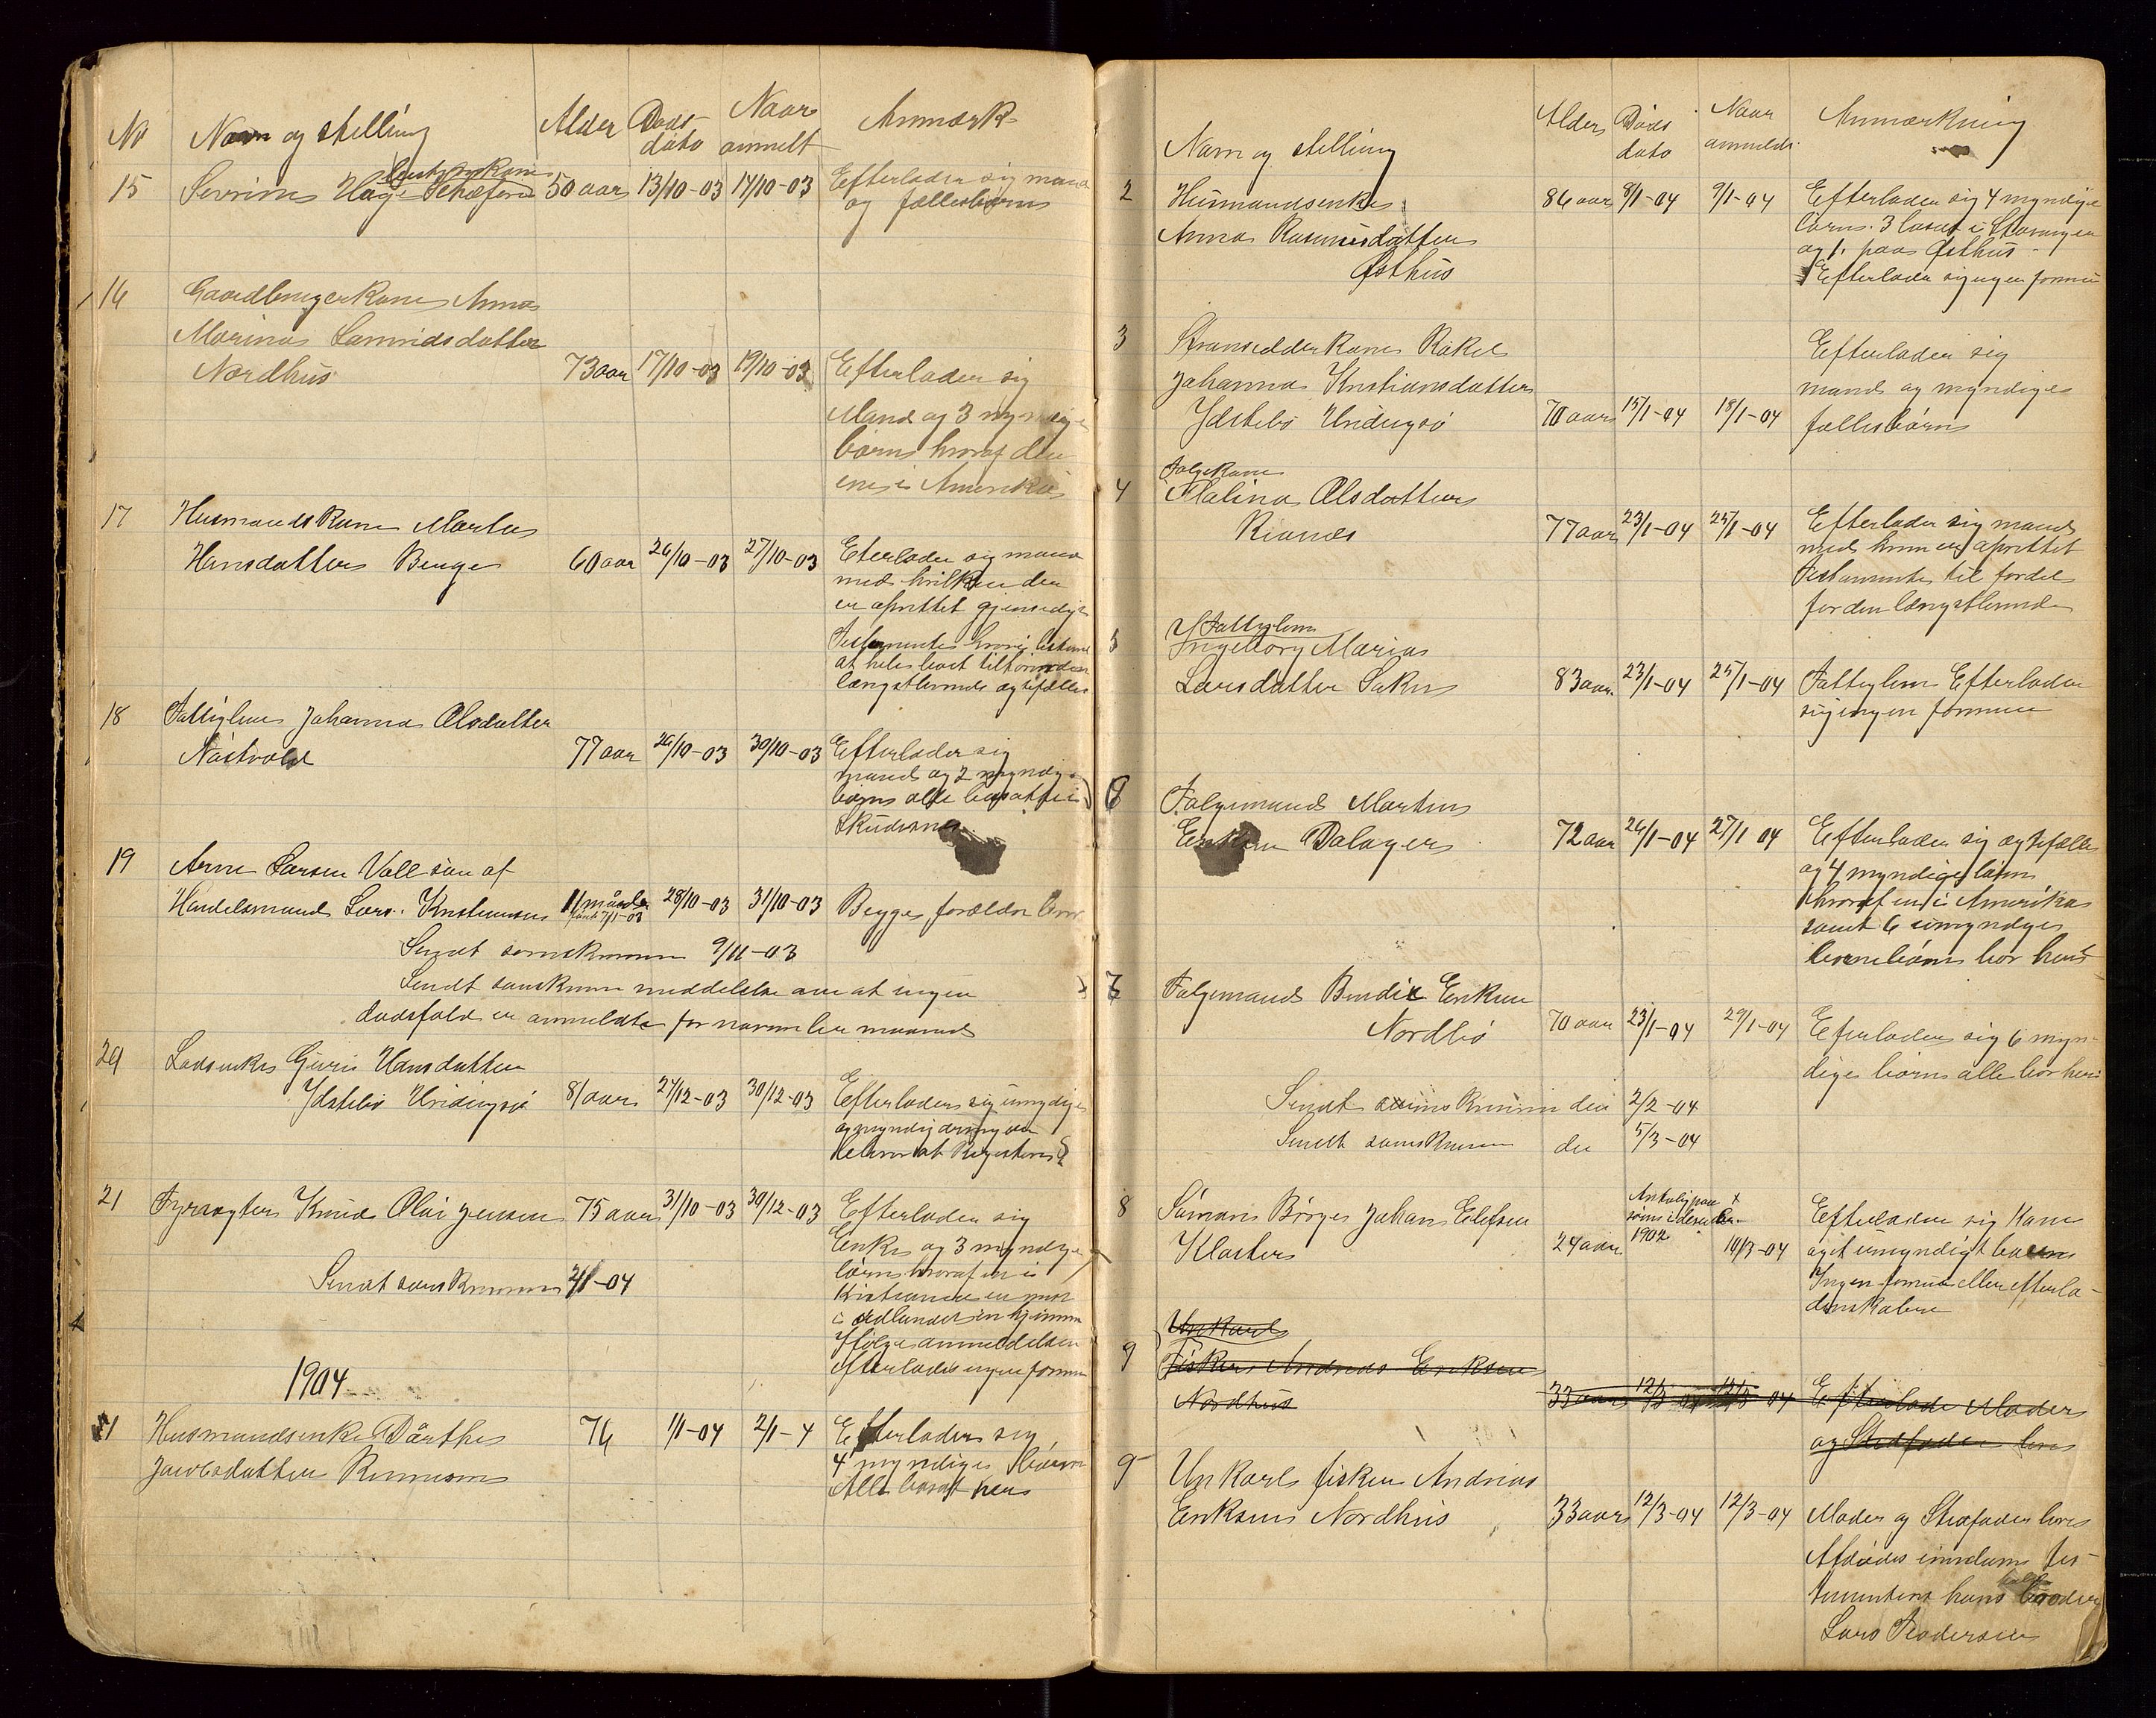 No Navn og stelling Alder Døds- dato Naar anmelt Anmærk-
15 Severine Hage 50 aar 13/10-03 17/10-03 Efterlader sig mand
og fællesbørn
16 Gaardbrugerkone Anna
Marina Samuidsdatter
Nordhus 73 aar 17/10-03 19/10-03 Efterlader sig
Mand og 3 myndige
børn hvoraf den
ene i Amerika
17 Husmandskone Marta
Hansdatter Benge 60 aar 26/10-03 27/10-03 Eterlader sig mand
med hvilken der
er oprettet gjensidigt
Testamente hvori bestemt
at hele boet tilhører den
længstlevende ægtefælle
18 Fattiglem Johanna Olsdatter
Nástvold 77 aar 26/10-03 30/10-03 Efterlader sig
mand og 2 myndige
børn alle bosatte i
Skudesnes
19 Arne Larsen Vall søn af
Handelsmand Lars Kristensen 11 måneder 28/10-03 31/10-03 Begge forældre lever
født 7/1-03
Sendt sorenskriveren 9/11-03
Sendt sorenskriveren meddelelse om at ingen
dødsfald er anmeldte for november maaned
20 Losenke Guri Hansdatter
Ydstebø Utsire 81 aar 27/12-03 30/12-03 Efterlader sig
21 Fyrvogter Knud Olai Jensen 75 aar 31/10-03 30/12-03 Efterlader sig
Enke og 3 myndige
børn hvoraf en i
Kristiania en
i udlandet en hjemme
Ifølge anmeldelsen
efterlades ingen formue
Sendt sorenskriveren 2/1-04
1904
1 Husmandsenke Dårthe
Jacobsdatter Rennesø 76 1/1-04 2/1-4 Efterlader sig
4 myndige børn
Alle bosat her
Navn og stelling Alder Døds dato Naar anmeldt Anmærkning
2 Husmandsenke 86 aar 8/1-04 9/1-04 Efterlader sig 4 myndige
Anna Rasmusdatter børn. 3 bosat i Stavanger
Østhus og 1 paa Østhus
Efterlader sig ingen formue
3 Strandsidderkone Rakel Efterlader sig
Johanna Kristiansdatter mand og myndige
Ydstebø 70 aar 15/1-04 18/1-04 fællesbørn
Følgekone
4 Malina Olsdatter
77 aar 23/1-04 25/1-04 Efterlader sig mand
med hvem er oprettet
Testamente til fordel
for den længstlevende
Fattiglem
5 Ingeborg Maria
Larsdatter 83 aar 23/1-04 25/1-04 Fattiglem Efterlader
sig ingen formue
6 Følgemand Martin
Eriksen Dalager 72 aar 26/1-04 27/1-04 Efterlader sig ægtefælle
og 4 myndige børn
hvoraf en i Amerika
samt 6 umyndige
børnebørn bor her
7 Følgemand Bendik Eriksen
Nordbø 70 aar 23/1-04 29/1-04 Efterlader sig 6 myn-
dige børn alle bor her
Sendt sorenskriveren den 2/2-04
Sendt sorenskriveren den 5/3-04
8 Sømand Børge Johan Elefsen Antagelig paa Efterlader sig Kone
sjøen i desember
Kloster 24 aar 1902 10/3-04 og et umyndigt barn
Ingen formue eller efterla-
denskaber
Unkarl
9 Fisker Andreas Eriksen
Nordhus 33 aar 12/3-04 12/3-04 Efterlader Moder
og Stedfader lever
9 Unkarl fisker Andreas
Eriksen Nordhus 33 aar 12/3-04 12/3-04 Moder og Stedfader lever
hans halvbroder
Lars Pedersen